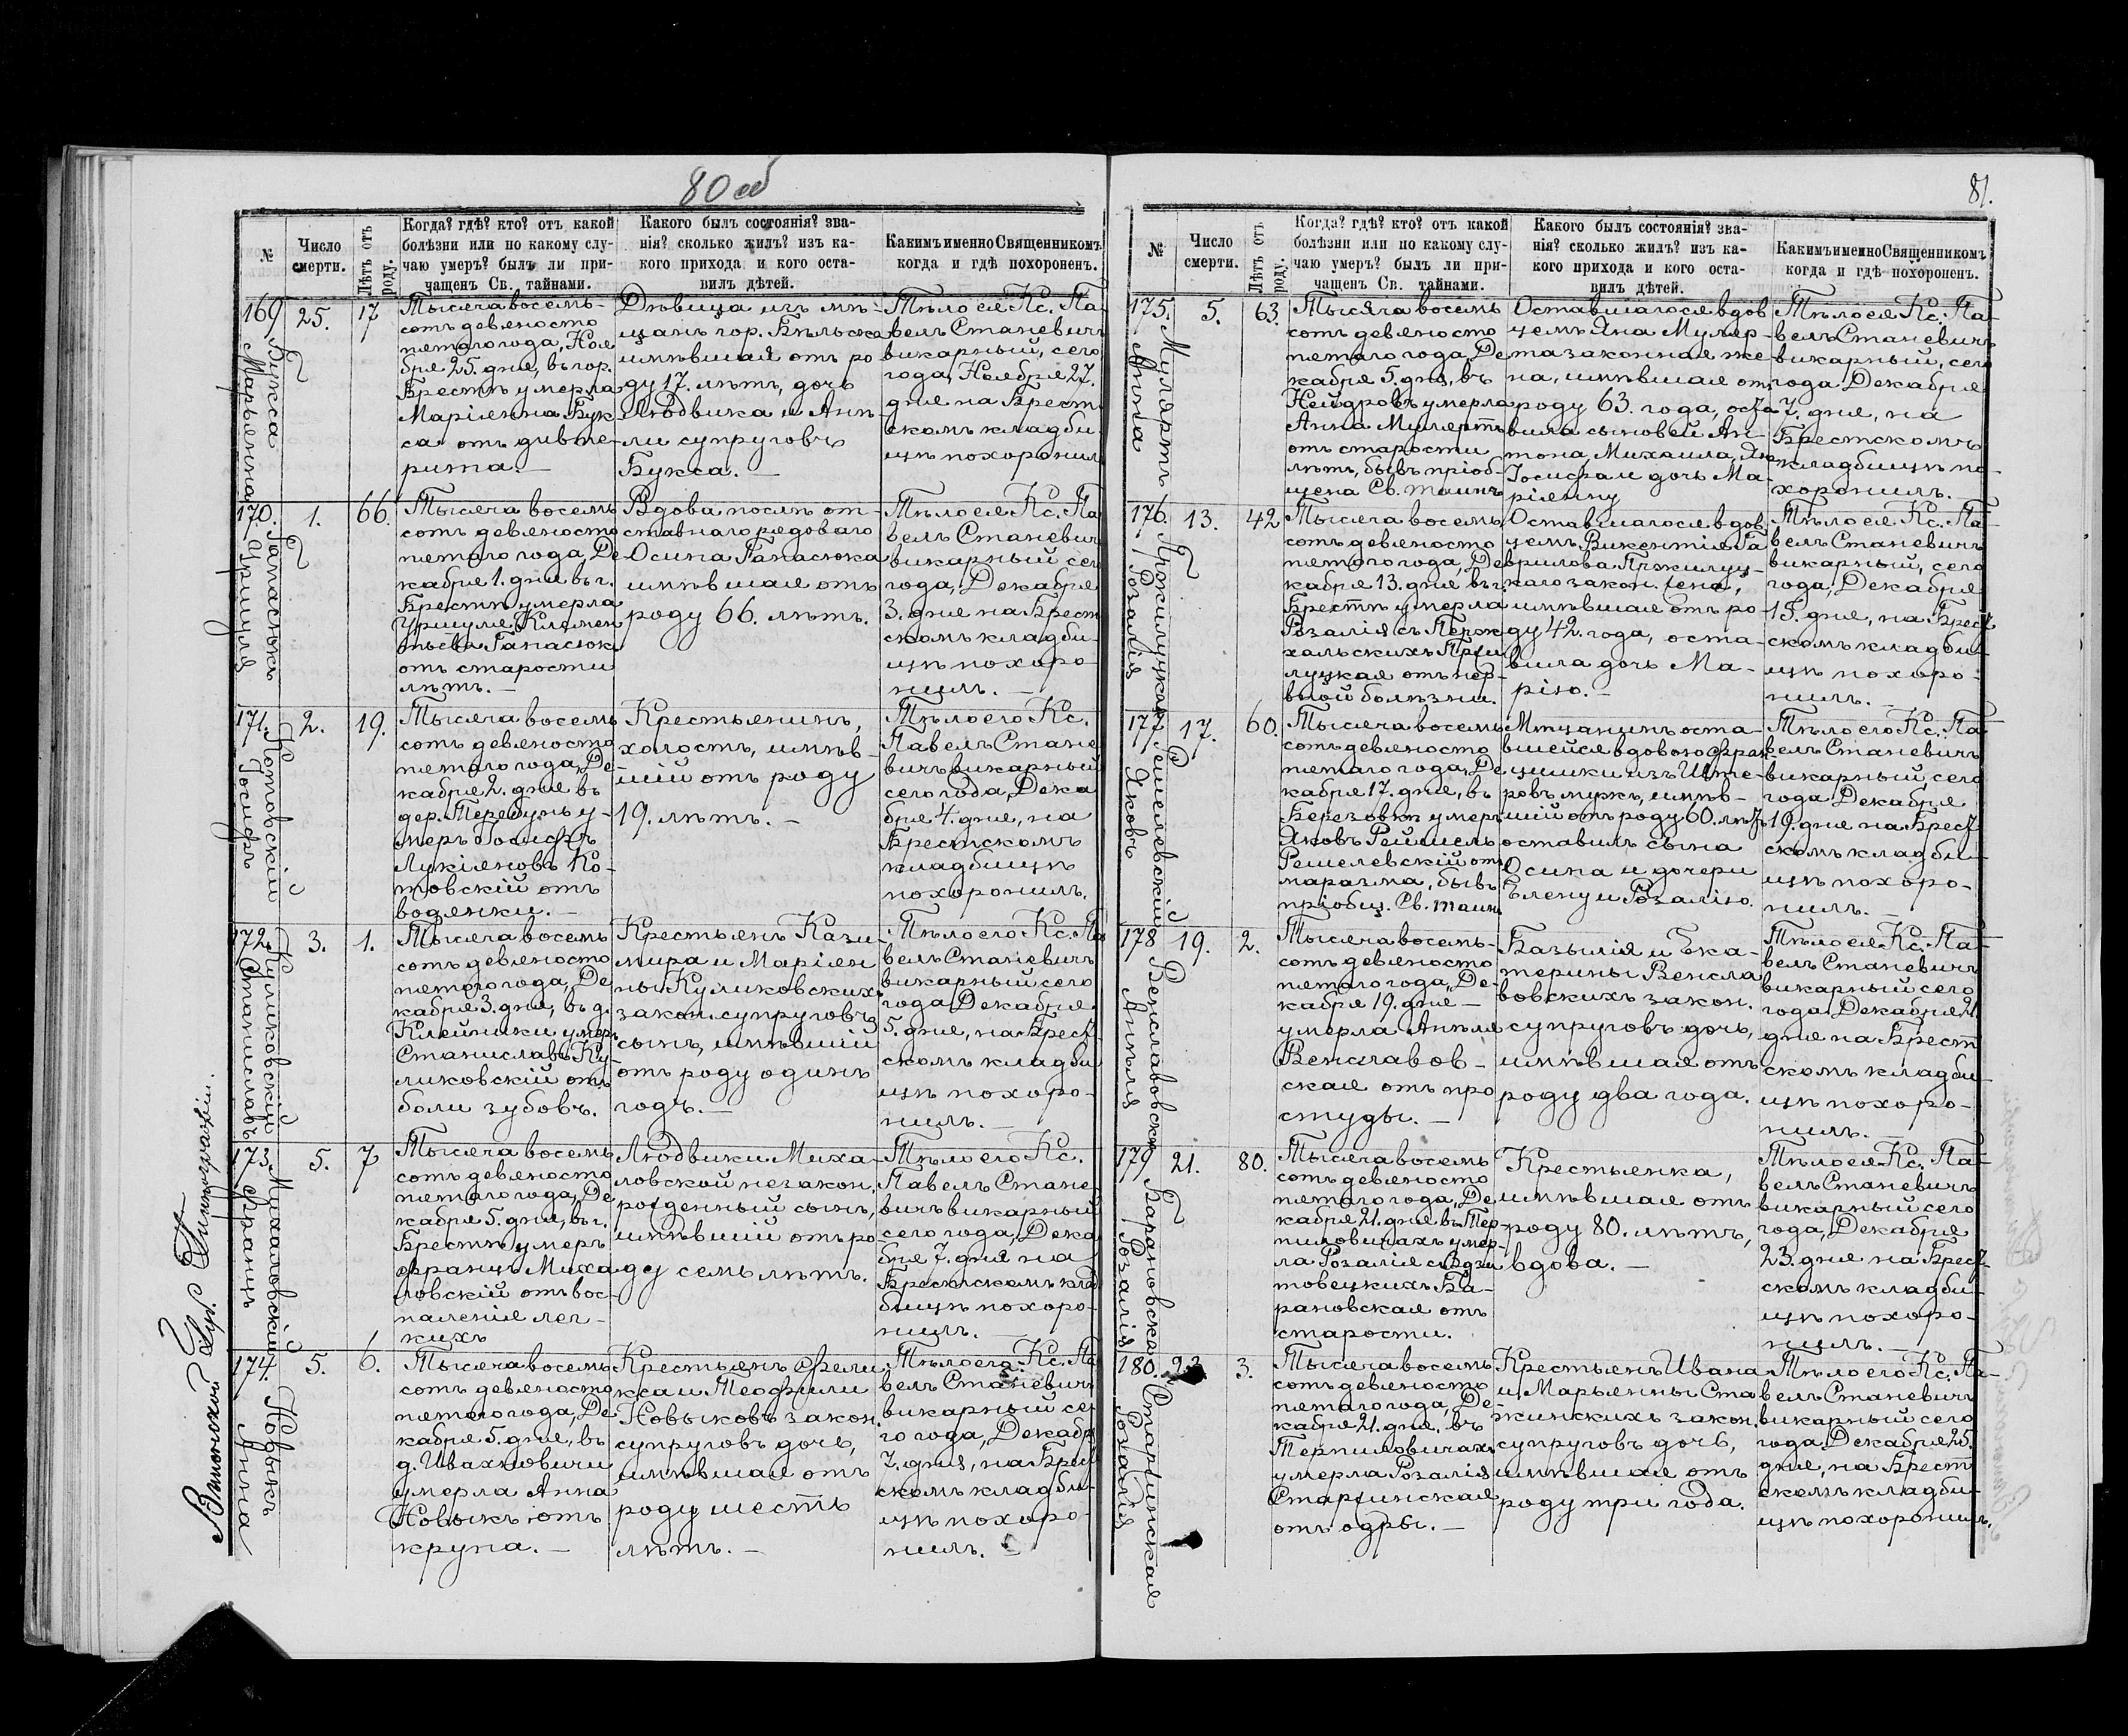 80 об
81.
№
Число
смерти.
Лѣтъ отъ
роду.
Когда? гдѣ? кто? отъ какой
болѣзни или по какому слу-
чаю умеръ? былъ ли при-
чащенъ Св. тайнами.
Какого былъ состоянія? зва-
нія? сколько жилъ? изъ ка-
кого прихода и кого оста-
вилъ дѣтей.
Какимъ именно Священникомъ
когда и гдѣ похороненъ.
169
Букса
Марьянна
25.
17
Тысяча восемь-
сотъ девяносто
пятаго года, Ноя
бря 25. дня, въ гор.
Брестѣ умерла
Маріянна Бук
са отъ дифте-
рита.—
Дѣвица изъ мѣ-
щанъ гор. Бѣльска
имѣвшая отъ ро
ду 17. лѣтъ, дочь
Людвика и Анѣ-
ли супруговъ
Букса.—
Тѣло ея Кс. Па-
велъ Станевичъ
викарный, сего
года, Ноября 27.
дня на Брест
скомъ кладби
щѣ похоронилъ
170.
Ганасюкъ
Уршуля
1.
66.
Тысяча восемь
сотъ девяносто
пятаго года, Де
кабря 1. дня въ г.
Брестѣ умерла
Уршуля Климен
тьева Ганасюкъ
отъ старости
лѣтъ.—
Вдова послѣ от-
ставнаго рядоваго
Осипа Ганасюка
имѣвшая отъ
роду 66. лѣтъ.
Тѣло ея Кс. Па
велъ Станевичъ
викарный сего
года, Декабря
3. дня на Брест
скомъ кладби-
щѣ похоро-
нилъ.—
171.
Котовскій
Іосифъ
2.
19.
Тысяча восемь
сотъ девяносто
пятаго года, Де-
кабря 2. дня въ
дер. Теребунь у-
меръ Іосифъ
Лукіяновъ Ко-
товскій отъ
водянки.—
Крестьянинъ,
холостъ, имѣв-
шій отъ роду
19. лѣтъ.—
Тѣло его Кс.
Павелъ Стане
вичъ викарный
сего года, Дека
бря 4. дня, на
Брестскомъ
кладбищѣ
похоронилъ.
172.
Куликовскій
Станиславъ
3.
1.
Тысяча восемь
сотъ девяносто
пятаго года, Де
кабря 3. дня, въ д.
Клейники умеръ
Станиславъ Ку-
ликовскій отъ
боли зубовъ.
Крестьянъ Кази-
мира и Маріян
ны Куликовскихъ
закон. супруговъ
сынъ, имѣвшій
отъ роду одинъ
годъ.—
Тѣло его Кс. Па
велъ Станевичъ
викарный сего
года Декабря
5. дня, на Брест
скомъ кладби
щѣ похоро-
нилъ.—
173.
Михаловскій
Францъ
5.
7
Тысяча восемь
сотъ девяносто
пятаго года, Де
кабря 5. дня, въ г.
Брестѣ умеръ
Францъ Миха
ловскій отъ вос-
паленія лег-
кихъ
Людвики Миха-
ловской незакон.
рожденный сынъ,
имѣвшій отъ ро
ду семь лѣтъ.
Тѣло его Кс.
Павелъ Стане
вичъ викарный
сего года, Дека
бря 7. дня на
Брестскомъ клад
бищѣ похоро-
нилъ.—
174.
Новыкъ
Анна
5.
6.
Тысяча восемь
сотъ девяносто
пятаго года, Де
кабря 5. дня, въ
д. Ивахновичи
умерла Анна
Новыкъ отъ
крупа.—
Крестьянъ Фели
кса и Теофили
Новыковъ закон.
супруговъ дочь,
имѣвшая отъ
роду шесть
лѣтъ.—
Тѣло ея Кс. Па
велъ Станевичъ
викарный се
го года, Декабр
7. дня, на Брест
скомъ кладби-
щѣ похоро-
нилъ.—
№
Число
смерти.
Лѣтъ отъ
роду.
Когда? гдѣ? кто? отъ какой
болѣзни или по какому слу-
чаю умеръ? былъ ли при-
чащенъ Св. тайнами.
Какого былъ состоянія? зва-
нія? сколько жилъ? изъ ка-
кого прихода и кого оста-
вилъ дѣтей.
Какимъ именно Священникомъ
когда и гдѣ похороненъ.
175.
Мулертъ
Анна
5.
63.
Тысяча восемь
сотъ девяносто
пятаго года, Де
кабря 5. дня, въ
умерла
Анна Мулертъ
отъ старости
лѣтъ, бывъ пріоб-
щена Св. таинъ
Оставшагося вдов
цемъ Яна Мулер-
та законная же
на, имѣвшая отъ
роду 63. года, оста
вила сыновей Ан-
тона, Михаила, Яна
Іосифа и дочь Ма-
ріянну
Тѣло ея Кс. Па-
велъ Станевичъ
викарный, сего
года Декабря
7. дня, на
Брестскомъ
кладбищѣ по-
хоронилъ.—
176.
Пржилуцкая
Розалія
13.
42
Тысяча восемь
сотъ девяносто
пятаго года, Де
кабря 13. дня въ г.
Брестѣ умерла
Розалія съ
Пржи
луцкая отъ нер-
вной болѣзни.
Оставшагося вдов
цемъ Викентія Га
врилова Пржилуц-
каго закон. жена,
имѣвшая отъ ро-
ду 42. года, оста-
вила дочь Ма-
рію.—
Тѣло ея Кс. Па-
велъ Станевичъ
викарный, сего
года, Декабря
15. дня, на Брест
скомъ кладби-
щѣ похоро-
нилъ.—
177
Решелевскій
Яковъ
17.
60.
Тысяча восемь
сотъ девяносто
пятаго года, Де
кабря 17. дня, въ
Березовкѣ умеръ
Яковъ
Решелевскій отъ
маразма, бывъ
пріобщ. Св. таинъ
Мѣщанинъ оста-
вшейся вдовою Фран
цишки изъ
мужъ, имѣв-
шій отъ роду 60. лѣтъ
оставилъ сына
Осипа и дочери
Елену и Розалію.
Тѣло его Кс. Па
велъ Станевичъ
викарный, сего
года Декабря
19. дня на Брест
скомъ кладби-
щѣ похоро-
нилъ.—
178
Венславовская
Анѣля
19.
2.
Тысяча восемь-
сотъ девяносто
пятаго года, Де-
кабря 19. дня—
умерла Анѣля
Венславов-
ская отъ про
студы.—
Базылія и Ека-
терины Венсла
вовскихъ закон.
супруговъ дочь,
имѣвшая отъ
роду два года.
Тѣло ея Кс. Па-
велъ Станевичъ
викарный сего
года Декабря 21.
дня на Брест
скомъ кладби-
щѣ похоро-
нилъ.
179
Барановская
Розалія
21.
80.
Тысяча восемь
сотъ девяносто
пятаго года, Де
кабря 21. дня въ Тер-
пиловичахъ умер-
ла Розалія съ
Ба-
рановская отъ
старости.
Крестьянка,
имѣвшая отъ
роду 80. лѣтъ,
вдова.—
Тѣло ея Кс. Па-
велъ Станевичъ
викарный сего
года, Декабря
23. дня на Брест-
скомъ кладби-
щѣ похоро-
нилъ.—
180.
Старжинская
Розалія
3.
Тысяча восемь
сотъ девяносто
пятаго года, Де-
кабря 21. дня, въ
Терпиловичахъ
умерла Розалія
Старжинская
отъ одры.—
Крестьянъ Ивана
и Марьянны Ста
жинскихъ закон.
супруговъ дочь,
имѣвшая отъ
роду три года.
Тѣло его Кс. Па-
велъ Станевичъ
викарный сего
года Декабря 25.
дня, на Брест
скомъ кладби-
щѣ похоронилъ.